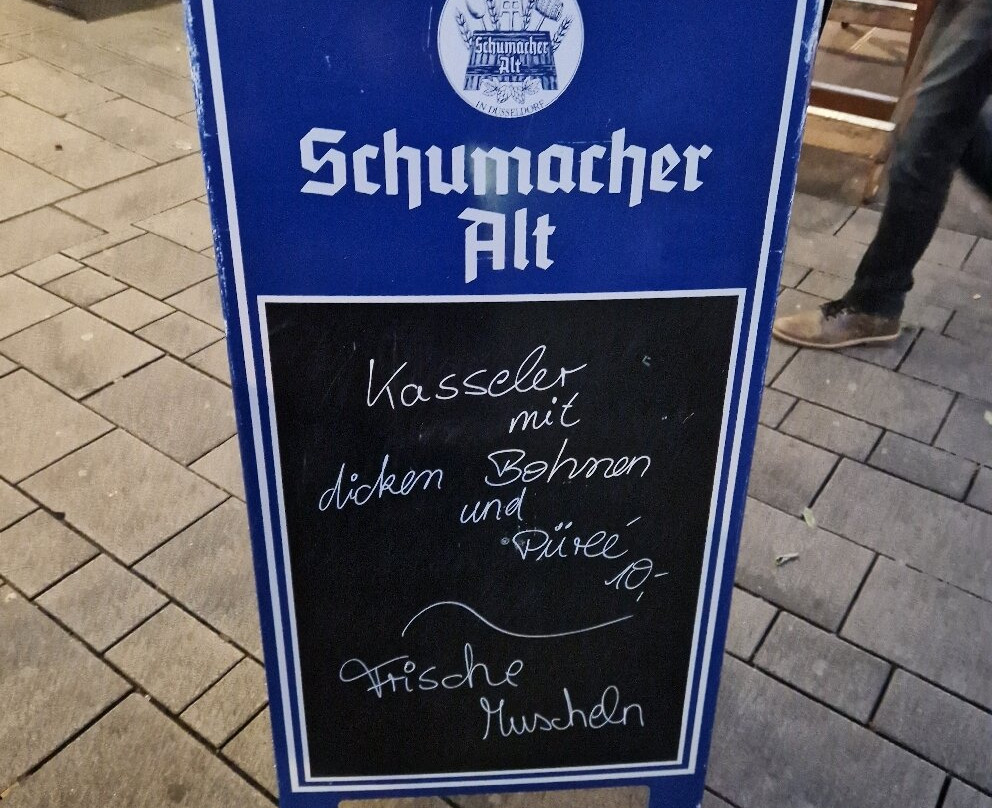 Schumacher
Alt
IN DÜSSELDORF
Schumacher
Alt
Kasseler
mit
dicken Bohnen
und
Püreé
10,-
Frische
Muscheln